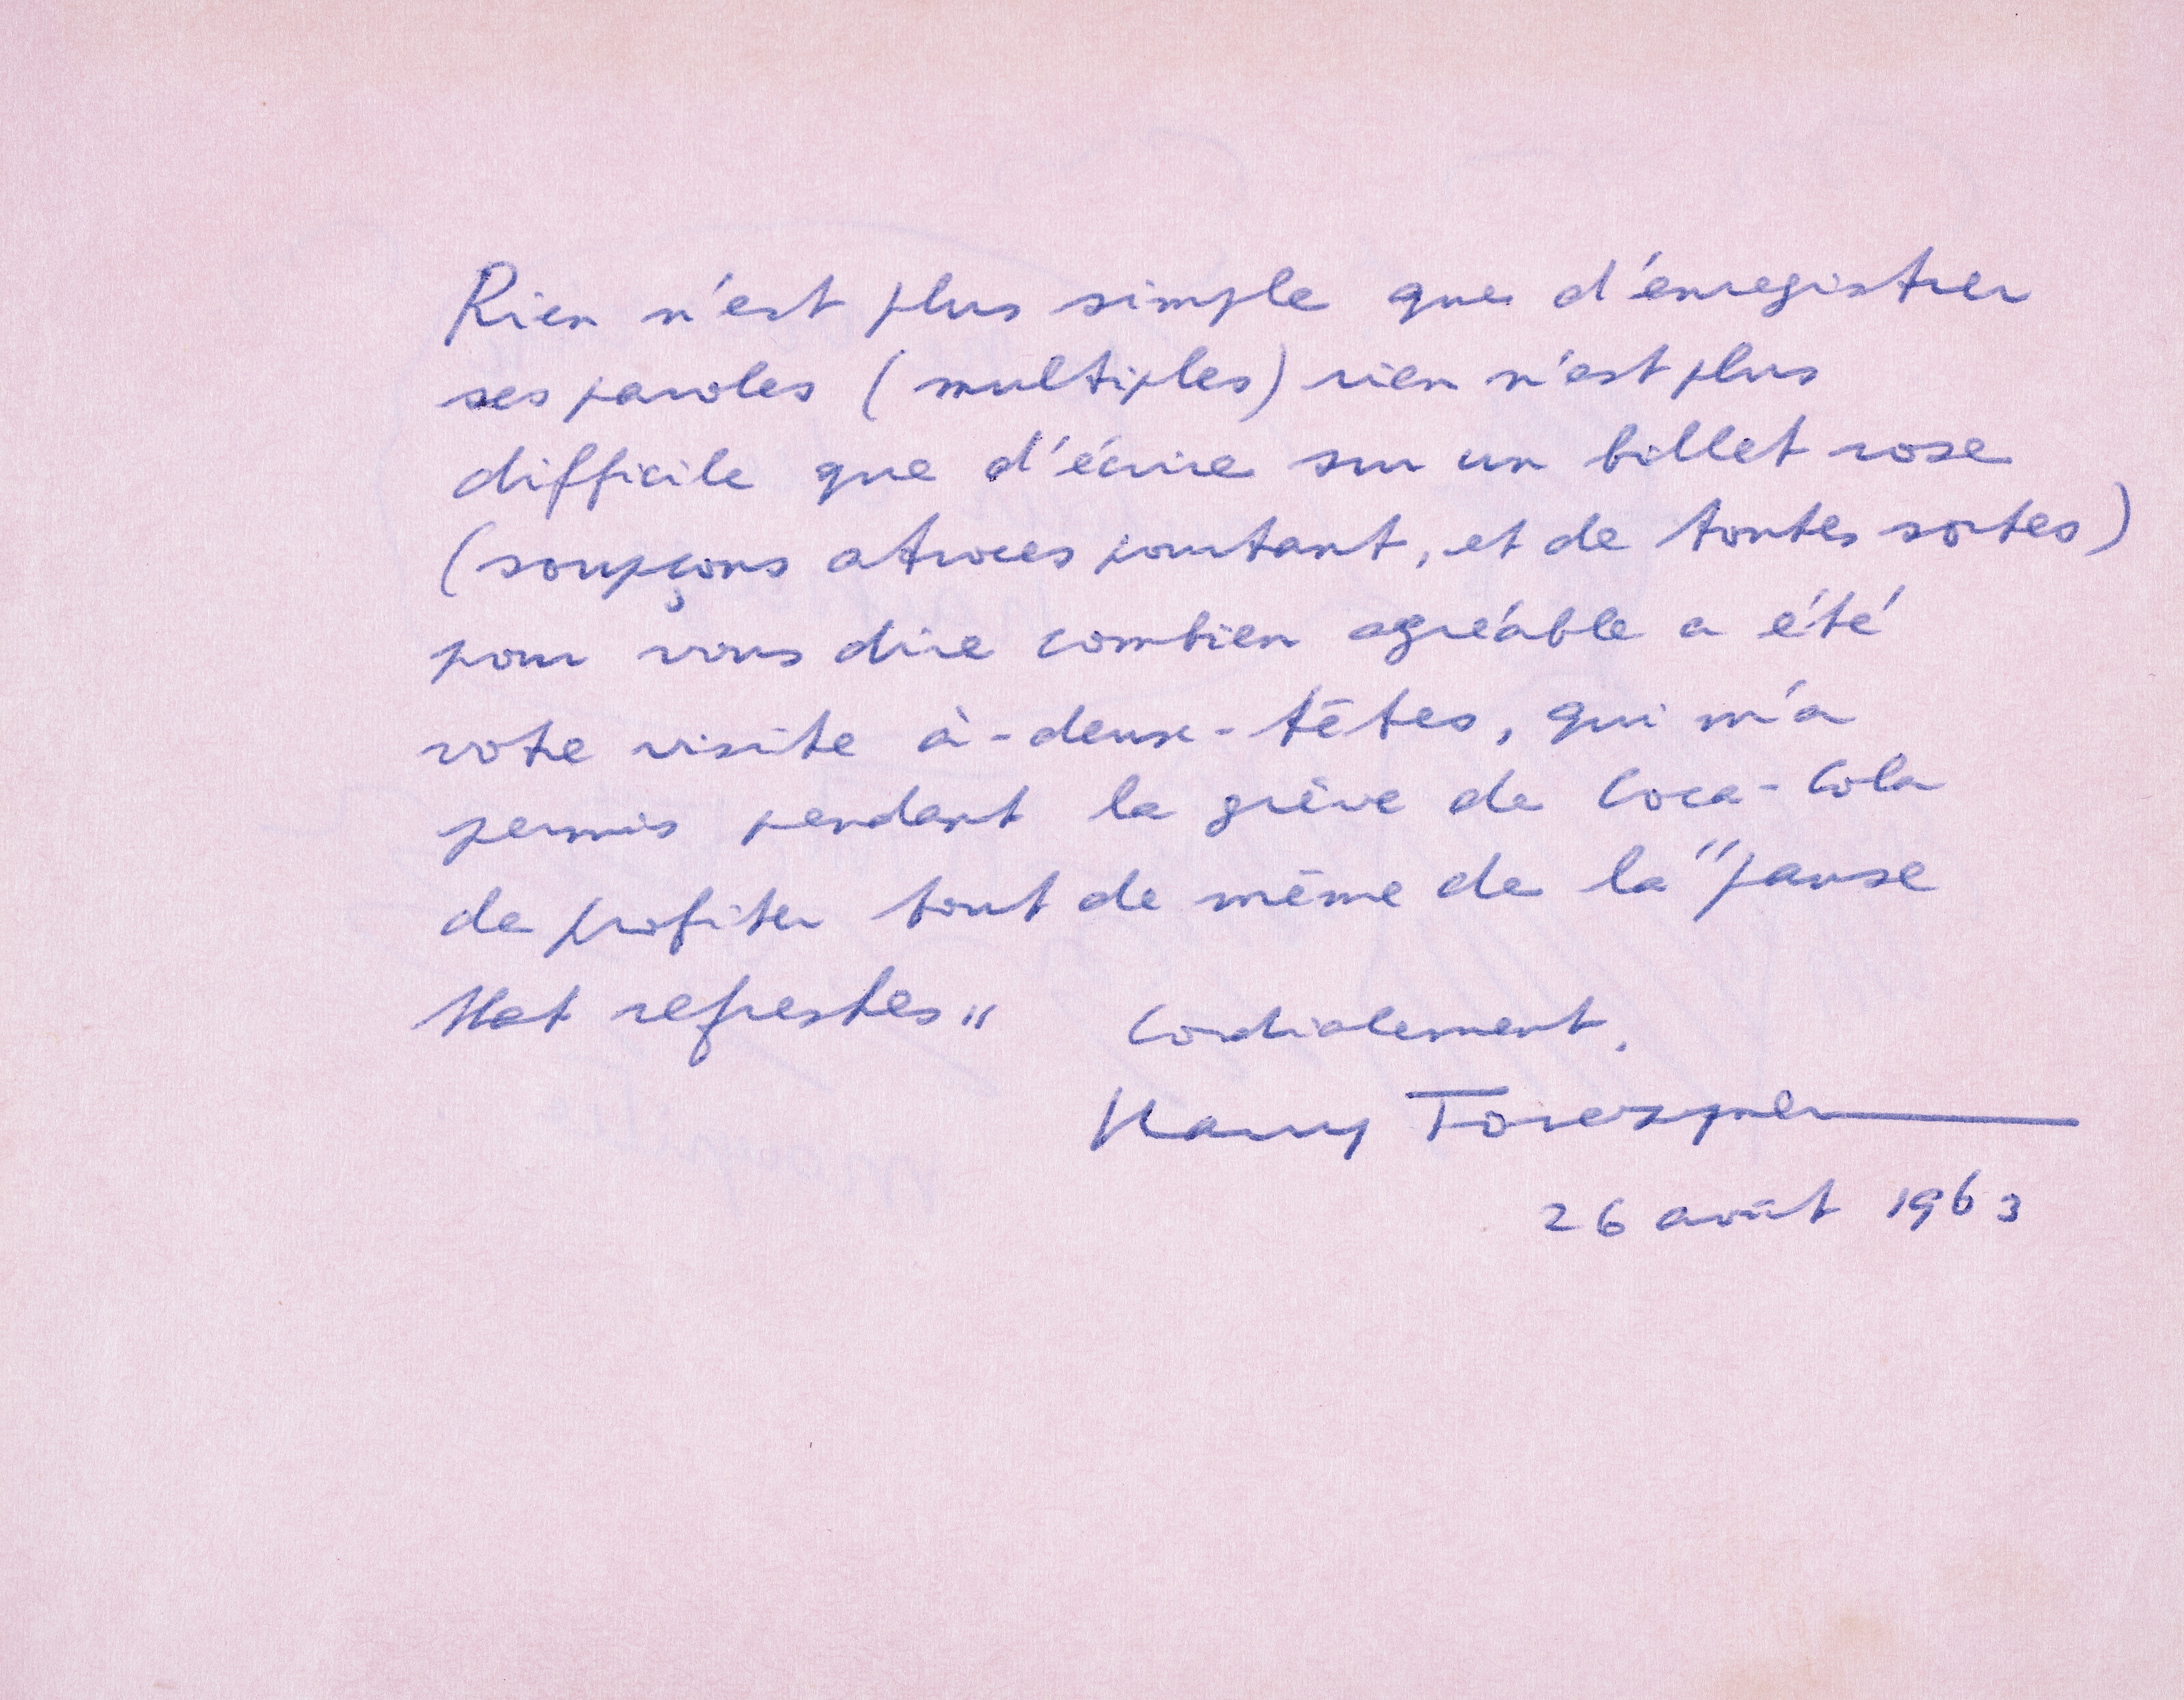 Rien n'est plus simple que d'enregistrer
ses paroles (multiples) rien n'est plus
difficile que d'écrire sur un billet rose
(soupçons atroces pourtant, et de toutes sortes)
pour vous dire combien agréable a été
votre visite à-deux-têtes, qui m'a
permis pendant la grève de Coca-Cola
de profiter tout de même de la "pause
that refreshes"
Cordialement,
Harry Torczyner
26 août 1963